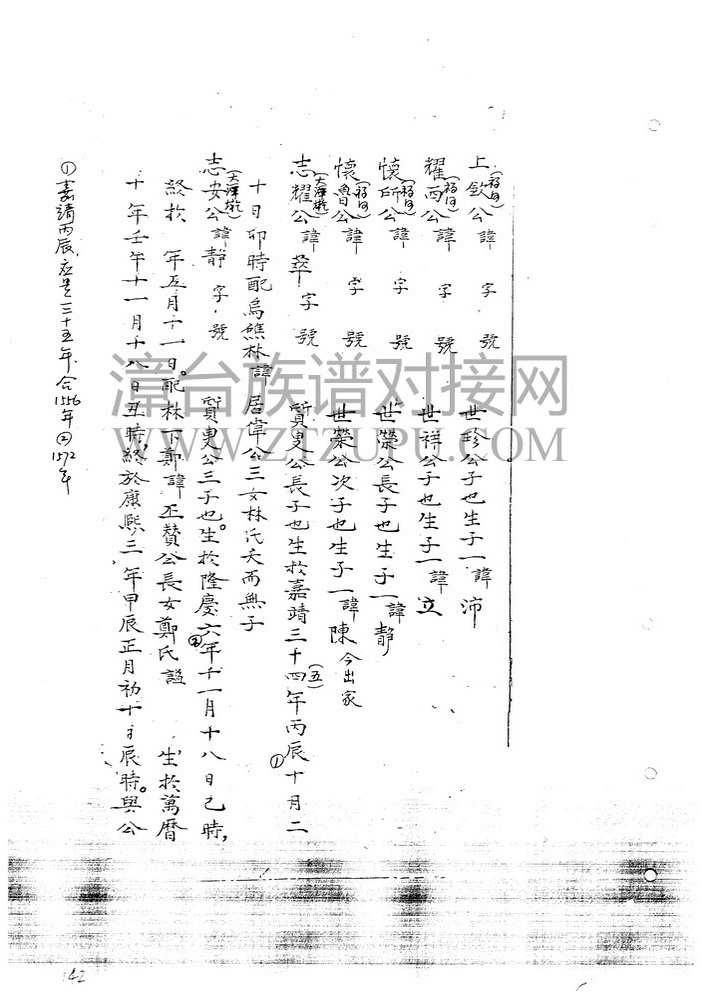 上欽公諱 字 號 世珍公子也生子一諱沛
耀西公諱 字 號 世祥公子也生子一諱立
懷所公諱 字 號 世榮公長子也生子一諱靜
懷魯公諱 字 號 世榮公次子也生子一諱陳今出家
志耀公諱萃字 號 質叟公長子也生於嘉靖三十四(五)年丙辰①十月二
十日卯時配烏礁林諱居偉公三女林氏夭而無子
志安公諱靜字 號 質叟公三子也。生於隆慶六年②十一月十八日己時,
終於 年五月十一日。配林下鄭諱丕贊公長女鄭氏謚 生於萬曆
十年壬午十一月十八日丑時,終於康熙三年甲辰正月初十 辰時。與公
①嘉靖丙辰,应是三十五年,合1556年②1572年
漳台族谱对接网
WWW.ZTZUPU.COM
142